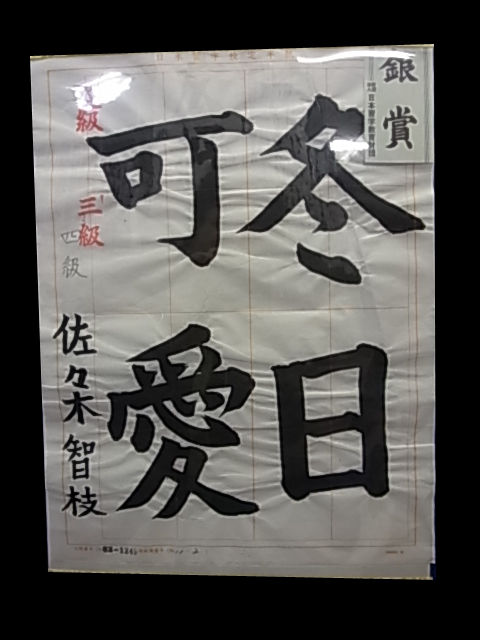 銀賞
日本習字教育財団
冬日
可愛
進級
三級
四級
佐々木智枝